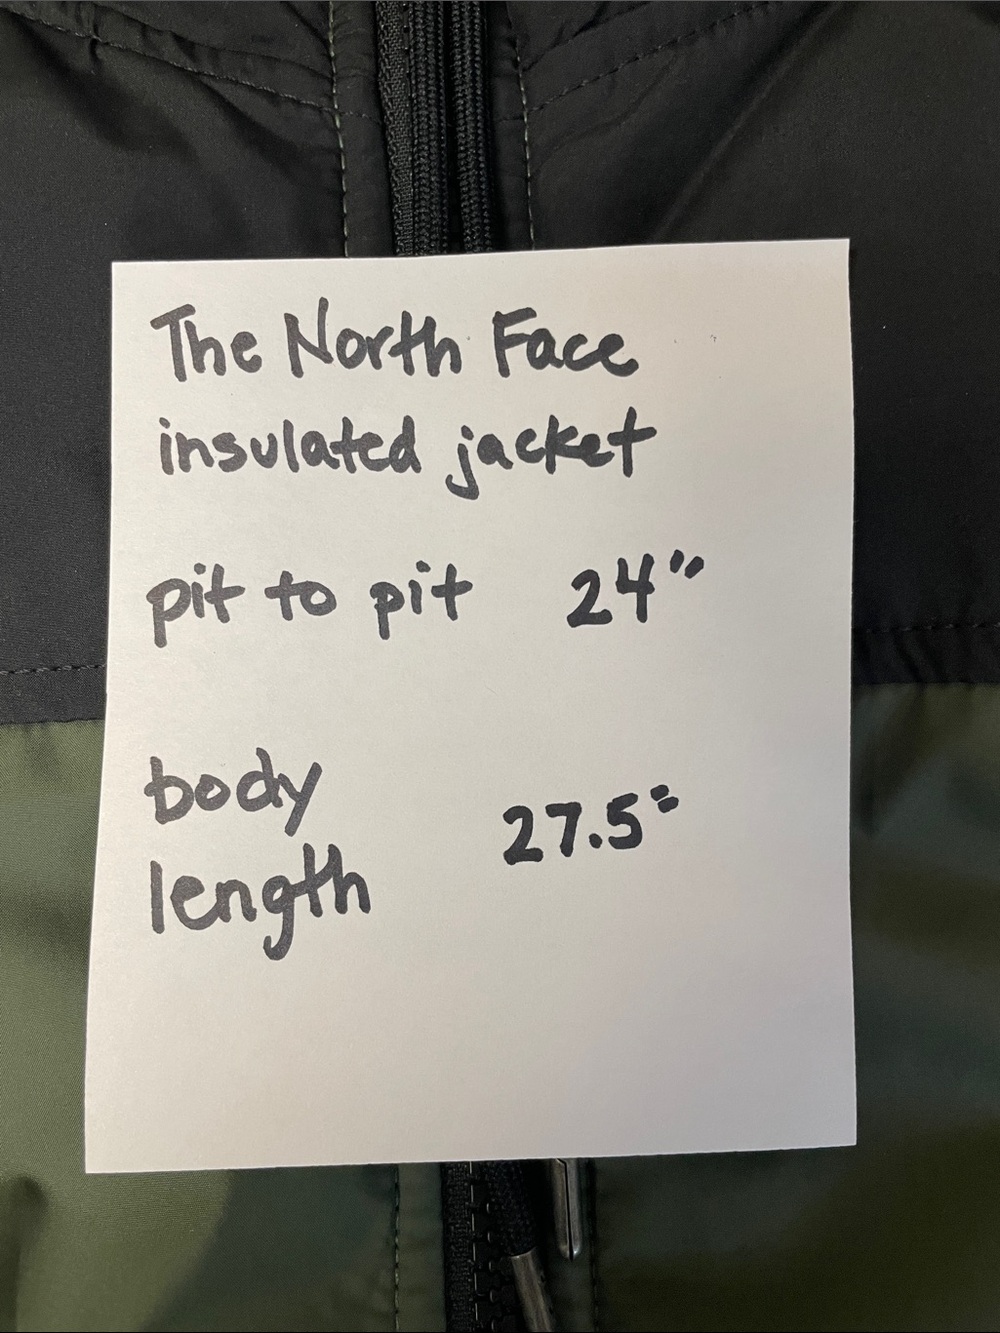 The North Face
insulated jacket
pit to pit 24"
body
length 27.5"